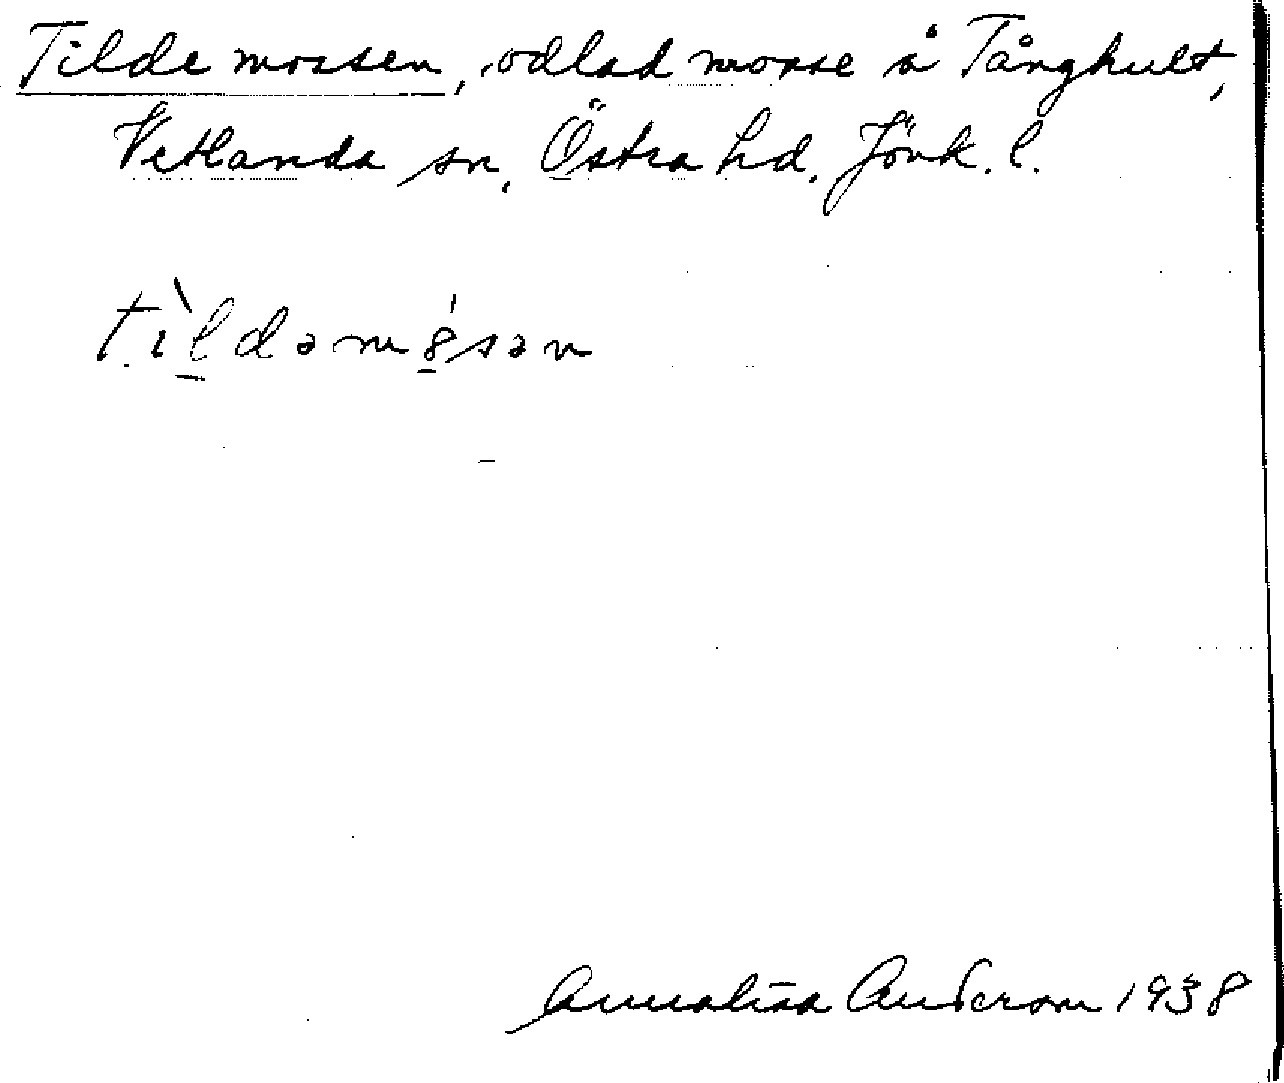 Tildemossen, odlad mosse å Tånghult,
Vetlanda sn, Östra hd. Jönk. l.
tìldəmȣ́sən
Annalisa Anderson 1938